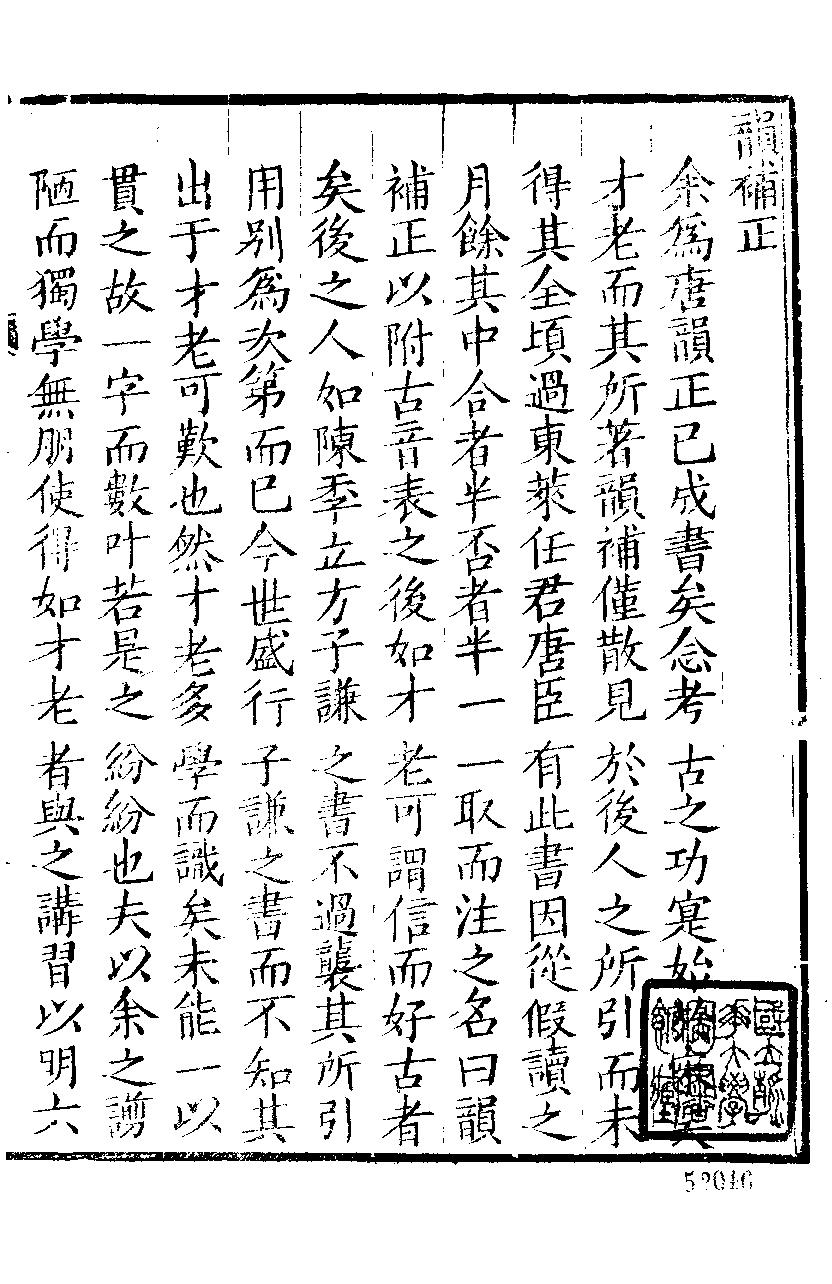 韻補正
余爲唐韻正已成書矣念考古之功寔始
才老而其所著韻補僅散見於後人之所引而未
得其全頃過東萊任君唐臣有此書因從假讀之
月餘其中合者半否者半一一取而注之名曰韻
補正以附古音表之後如才老可謂信而好古者
矣後之人如陳季立方子謙之書不過襲其所引
用別爲次第而已今世盛行子謙之書而不知其
出于才老可歎也然才老多學而識矣未能一以
貫之故一字而數叶若是之紛紛也夫以余之謭
陋而獨學無朋使得如才老者與之講習以明六
52046